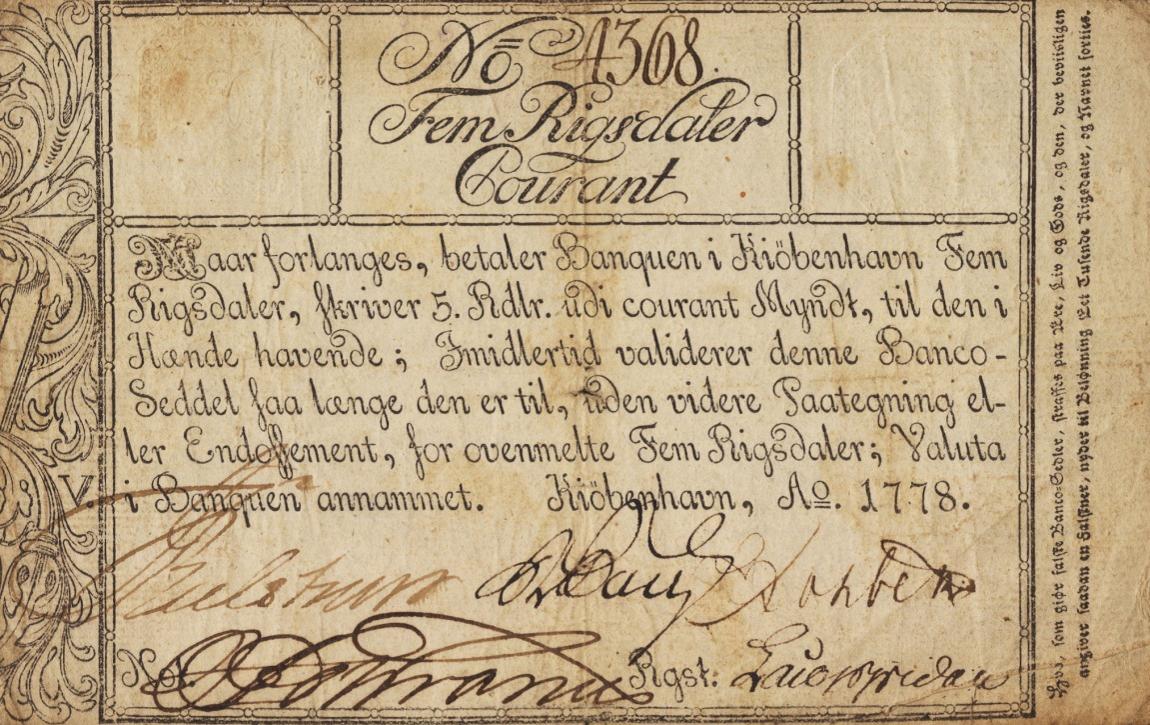 No 4368.
Fem Rigsdaler
Courant
Naar forlanges, betaler Banquen i Kiöbenhavn Fem
Rigsdaler, skriver 5. Rdlr. udi courant Myndt, til den i
Hænde havende; Imidlertid validerer denne Banco-
Seddel saa længe den er til, uden videre Paategning el-
ler Endossement, for ovenmelte Fem Rigsdaler; Valuta
i Banquen annammet. Kiöbenhavn, Ao. 1778.
V.
Not: Rgst:
Hvo, som giør falske Banco-Sedler, straffes paa Ære, Liv og Gods, og den, der beviisligen
angiver saadan en Falskner, nyder til Belønning Eet Tusende Rigsdaler, og Navnet forties.